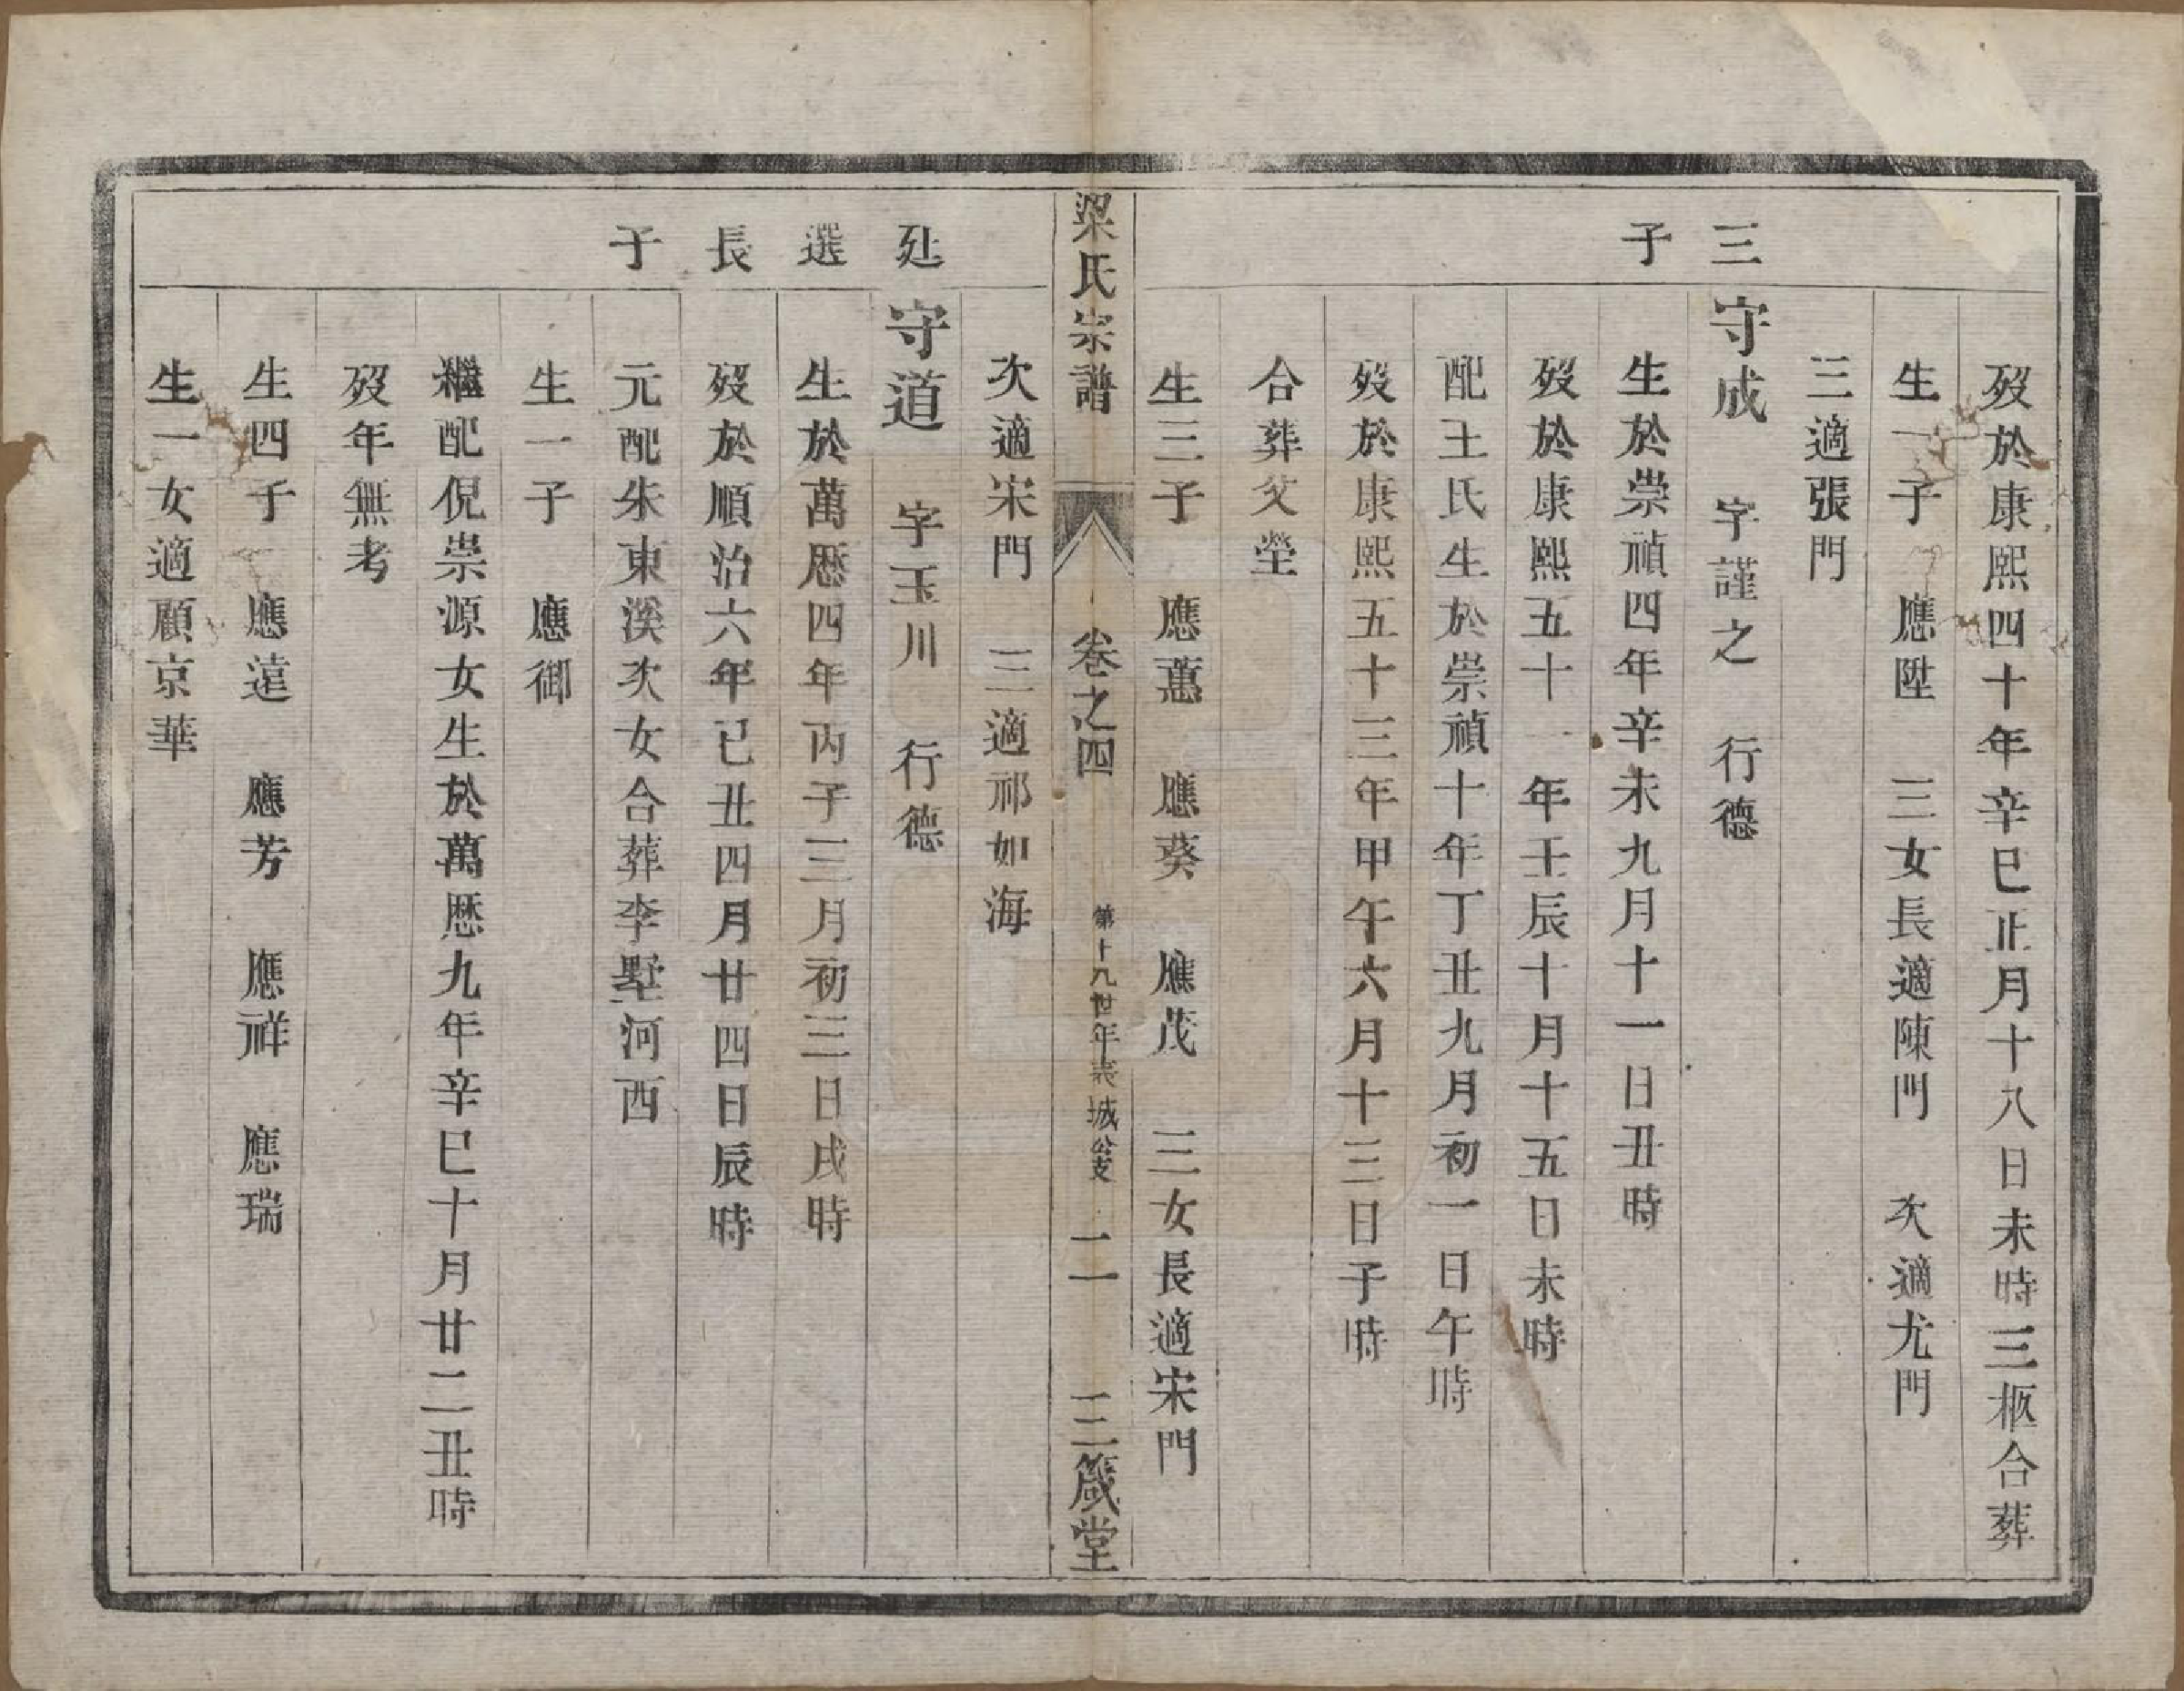 歿於康熙四十年辛巳正月十八日未時三柩合葬
生一子　應陞　三女長適陳門　次適尤門
三適張門
三　守成　字謹之　行德
子　生於崇禎四年辛未九月十一日丑時
歿於康熙五十一年壬辰十月十五日未時
配王氏生於崇禎十年丁丑九月初一日午時
歿於康熙五十三年甲午六月十三日子時
合葬父塋
生三子　應蕙　應葵　應茂　三女長適宋門
梁氏宗譜　卷之四　第十九世年表　城公支　二一　三箴堂
次適宋門　三適祁如海
廷　守道　字玉川　行德
選　生於萬曆四年丙子三月初三日戌時
長　歿於順治六年己丑四月廿四日辰時
子　元配朱東溪次女合葬李墅河西
生一子　應御
繼配倪崇源女生於萬曆九年辛巳十月廿二丑時
歿年無考
生四子　應遠　應芳　應祥　應瑞
生一女適顧京華